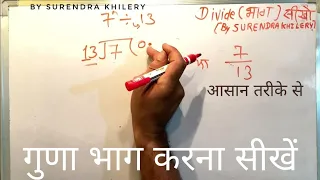 BY SURENDRA KHILERY
7 ÷ 13
Divide (भाग) सीखो
(By SURENDRA KHILERY)
13 ⟌ 7 ( 0
7
13
आसान तरीके से
गुणा भाग करना सीखें